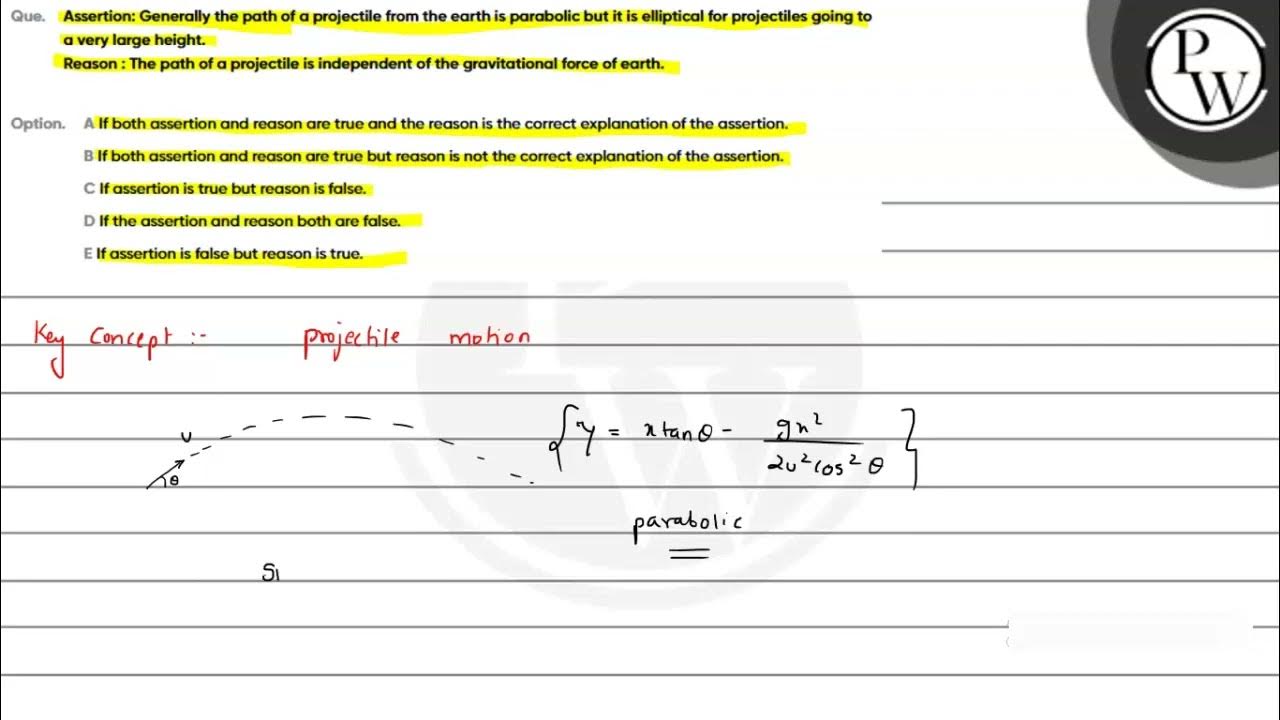 Que. Assertion: Generally the path of a projectile from the earth is parabolic but it is elliptical for projectiles going to
a very large height.
Reason : The path of a projectile is independent of the gravitational force of earth.
Option. A If both assertion and reason are true and the reason is the correct explanation of the assertion.
B If both assertion and reason are true but reason is not the correct explanation of the assertion.
C If assertion is true but reason is false.
D If the assertion and reason both are false.
E If assertion is false but reason is true.
P
W
Key concept :- projectile motion
u
θ
y = x tan θ - gx² / 2u² cos² θ
parabolic
Si